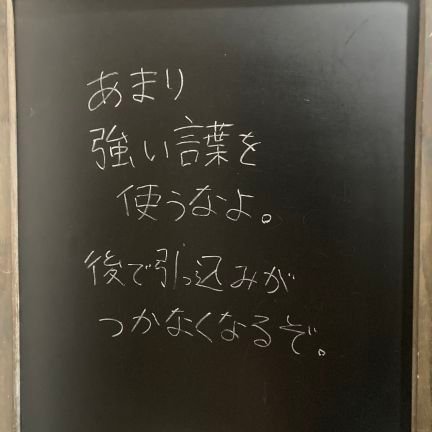 あまり
強い言葉を
使うなよ。
後で引っ込みが
つかなくなるぞ。